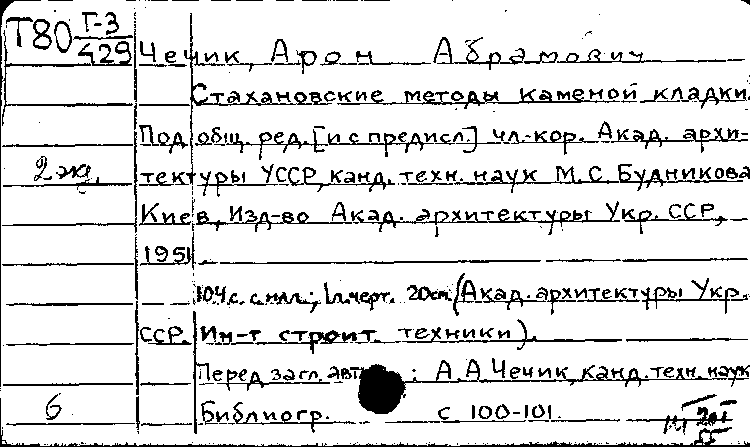 Т80 Т-3
429
Чечик, Арон Абрамович
Стахановские методы каменой кладки.
Под общ. ред. [и с предисл.] чл.-кор. Акад. архи-
2 экз.
тектуры УССР, канд. техн. наук М.С. Будникова
Киев, Изд-во Акад. архитектуры Укр. ССР,
1951.
104 с. с илл.; 1 л. черт. 20 см (Акад. архитектуры Укр.
ССР. Ин-т строит. техники).
Перед загл. авт : А.А Чечик, канд. техн. наук
6
Библиогр. с 100-101.